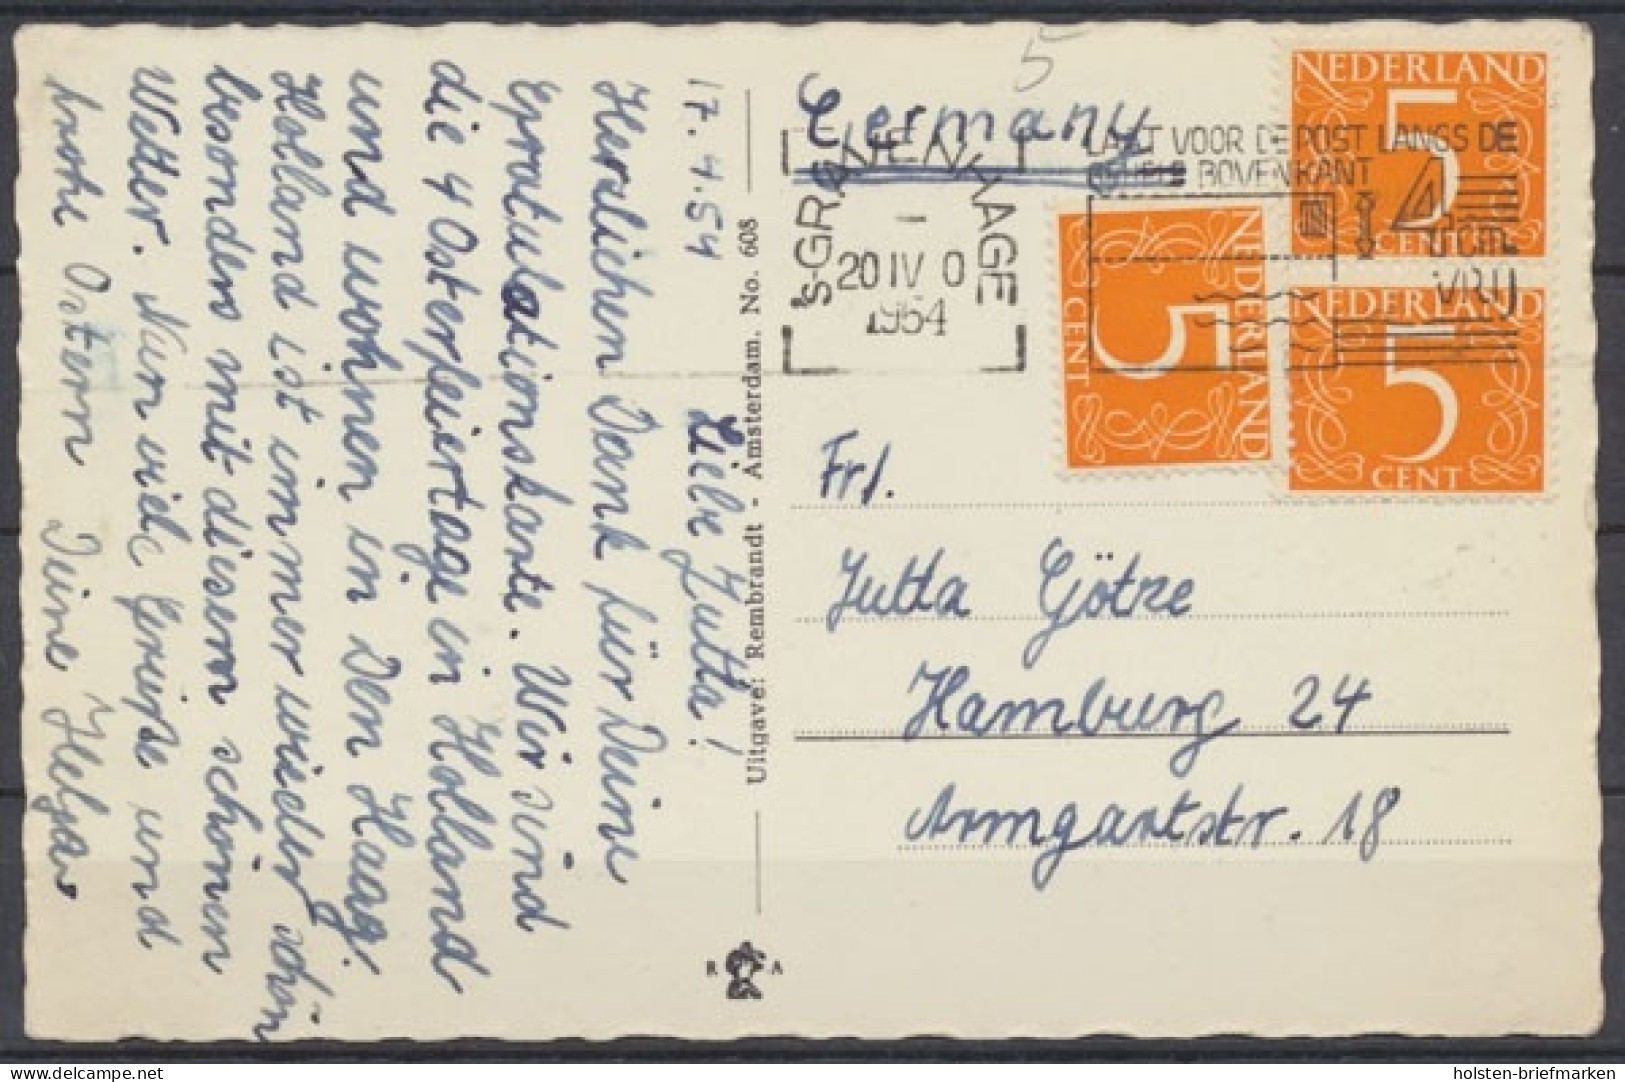 17.4.54
Liebe Jutta!
Herzlichen Dank für Deine
Gratulationskarte. Wir sind
die 4 Osterfeiertage in Holland
und wohnen in Den Haag.
Holland ist immer wieder schön
besonders mit diesem schönen
Wetter. Nun viele Grüße und
frohe Ostern Deine Helga
Uitgave: Rembrandt - Amsterdam. No. 608
R A
5
Germany
'S-GRAVENHAGE
20 IV 0
1954
LAAT VOOR DE POST LANGS DE
BOVENKANT
4 cm
VRIJ
NEDERLAND
5
CENT
NEDERLAND
5
CENT
NEDERLAND
5
CENT
Frl.
Jutta Götze
Hamburg 24
Armgartstr. 18
delcampe.net
holsten-briefmarken